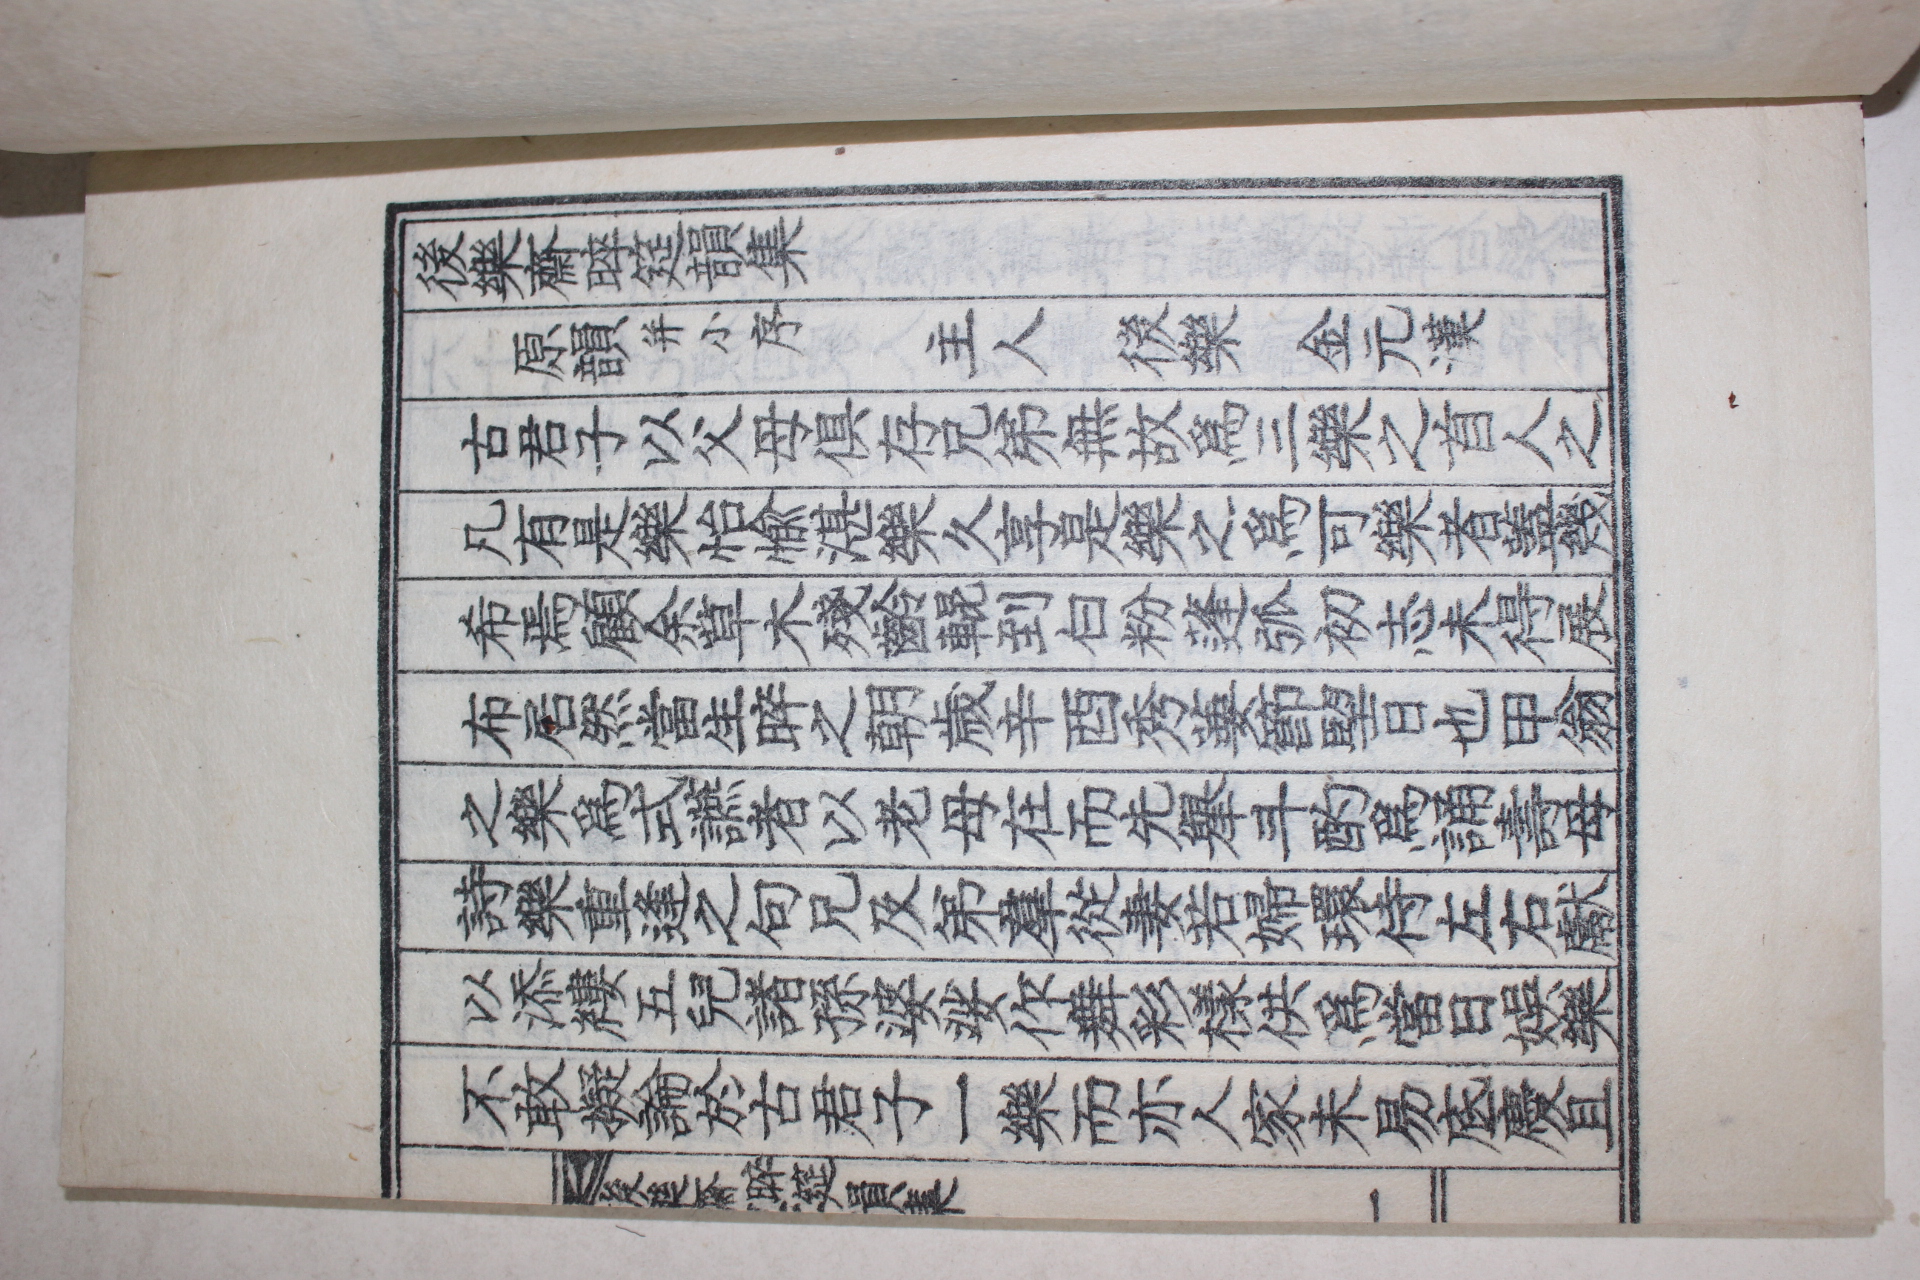 後樂齋晬筵韻集
原韻 并小序 主人 後樂 金元漢
古君子以父母俱存兄弟無故爲三樂之首人之
凡有是樂怡愉湛樂久享是樂之爲可樂者蓋幾
希焉顧余草木殘齡輥到白粉蓬弧初志未得展
布居然當生晬之朝歲辛酉秀葽節望日也甲翁
之樂爲式讌者以老母在而先舉斗酌爲誦壽母
詩樂重逢之句兄及弟羣從妻若婦環侍左右獻
以添縷五兒諸孫婆娑作舞彩樣供爲當日娛樂
不敢擬論於古君子一樂而亦人家未易底慶且
後樂齋晬筵韻集
一